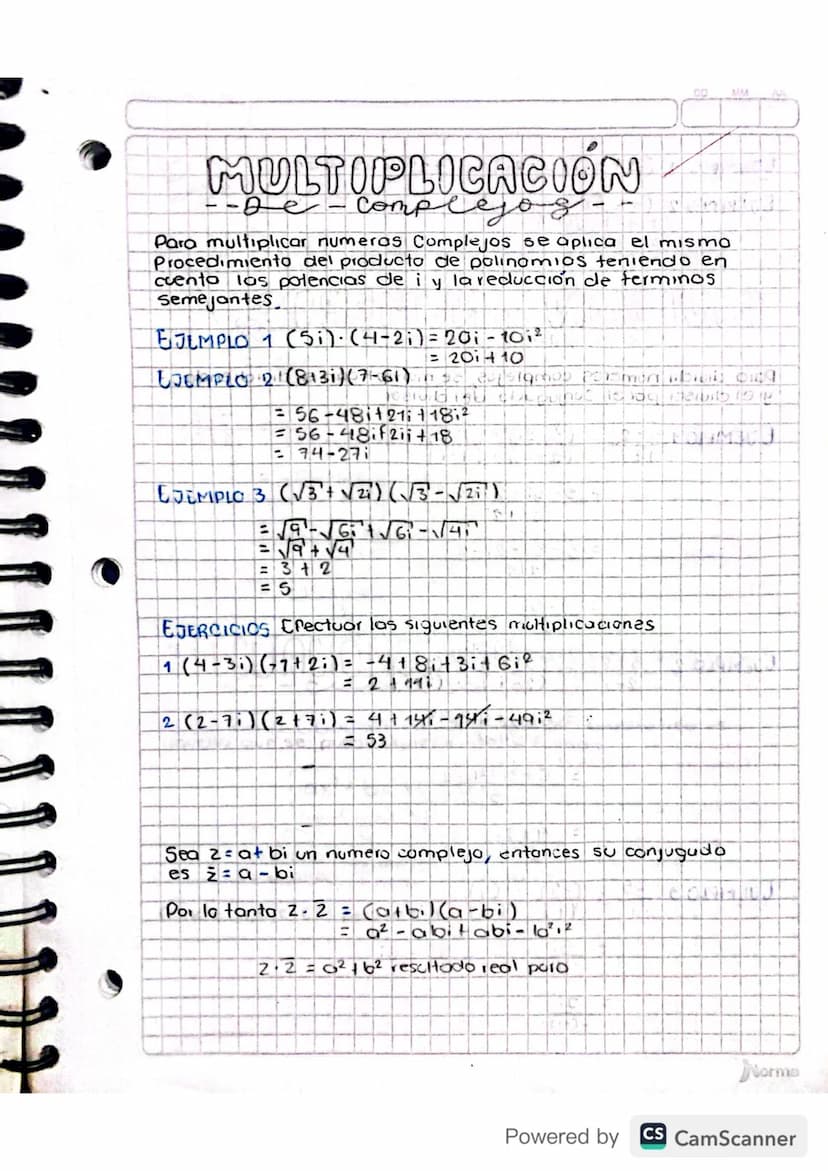 DD MM AA
MULTIPLICACIÓN
--De - Complejos--
Para multiplicar numeros Complejos se aplica el mismo
Procedimiento del producto de polinomios teniendo en
cuenta las potencias de i y la reducción de terminos
semejantes.
EJEMPLO 1 (5i)·(4-2i) = 20i - 10i²
= 20i + 10
EJEMPLO 2 (8+3i)(7-6i)
= 56 - 48i + 21i + 18i²
= 56 - 48i + 21i + 18
= 74 - 27i
EJEMPLO 3 (√3 + √2i) (√3 - √2i)
= √9 - √6i + √6i - √4i
= √9 + √4
= 3 + 2
= 5
EJERCICIOS Efectuar las siguientes multiplicaciones
1 (4-3i)(-1+2i) = -4 + 8i + 3i + 6i²
= 2 + 11i
2 (2-7i)(2+7i) = 4 + 14i - 14i - 49i²
= 53
Sea z = a + bi un numero complejo, entonces su conjugado
es z̄ = a - bi
Por lo tanto z · z̄ = (a+bi)(a-bi)
= a² - abi + abi - b²i²
z · z̄ = a² + b² resultado real puro
Norma
Powered by CS CamScanner